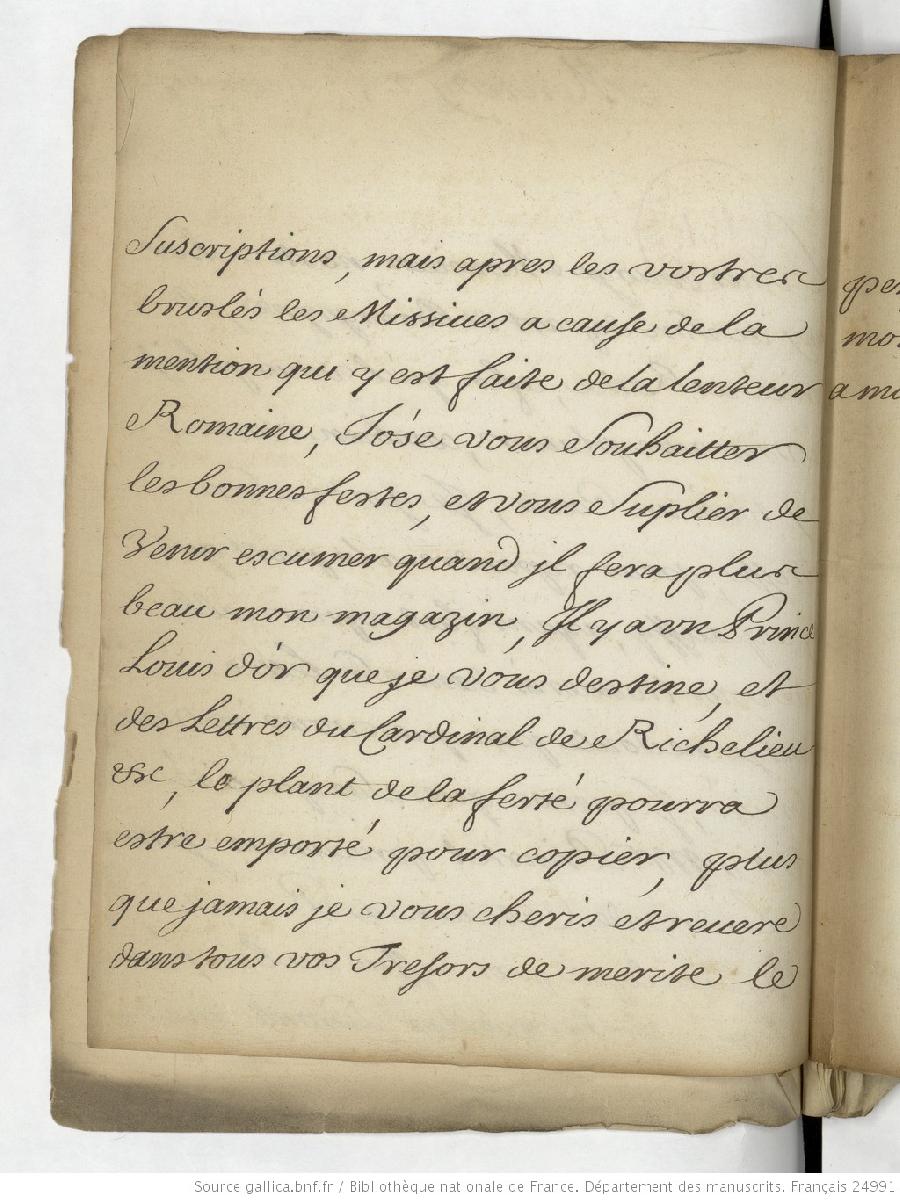 Suscriptions, mais apres les vostres
bruslés les Missiues a cause de la
mention qui y est faite de la lenteur
Romaine, J'óse vous Souhaitter
les bonnes festes, et vous Suplier de
Venir escumer quand jl fera plus
beau mon magazin, Jl y a vn Prince
Louis d'ór que je vous destine, et
des Lettres du Cardinal de Richelieu
&c, le plant de la ferté pourra
estre emporté pour copier, plus
que jamais je vous cheris et reuere
dans tous vos Tresors de merite le
Source gallica.bnf.fr / Bibliothèque nationale de France. Département des manuscrits. Français 24991